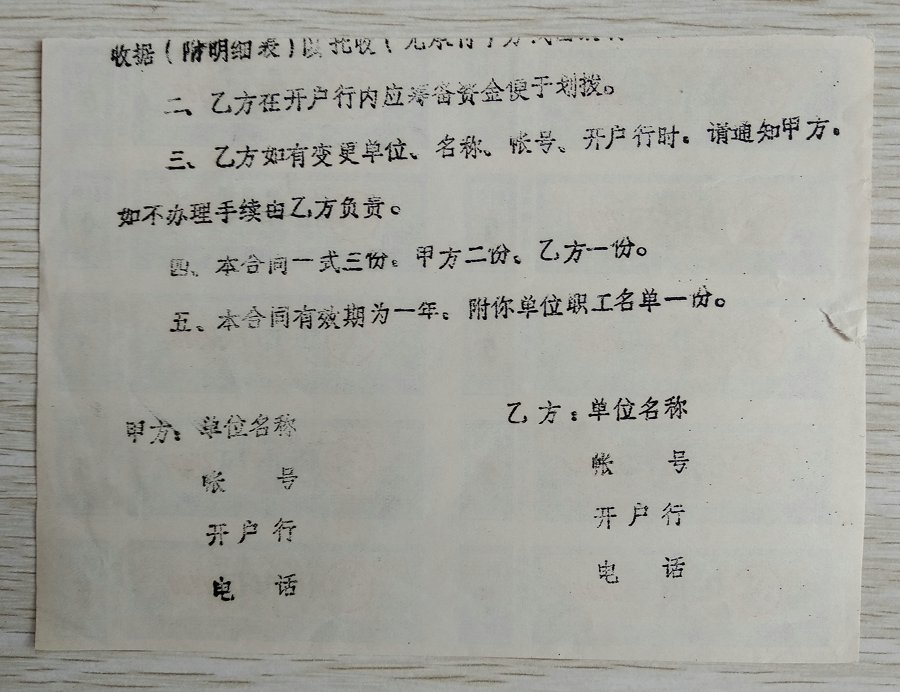 收据（附明细表）以托收（无承付）方式
二、乙方在开户行内应筹备资金便于划拨。
三、乙方如有变更单位、名称、帐号、开户行时。请通知甲方。
如不办理手续由乙方负责。
四、本合同一式三份。甲方二份、乙方一份。
五、本合同有效期为一年。附你单位职工名单一份。
甲方：单位名称
帐 号
开户行
电 话
乙方：单位名称
帐 号
开户行
电 话